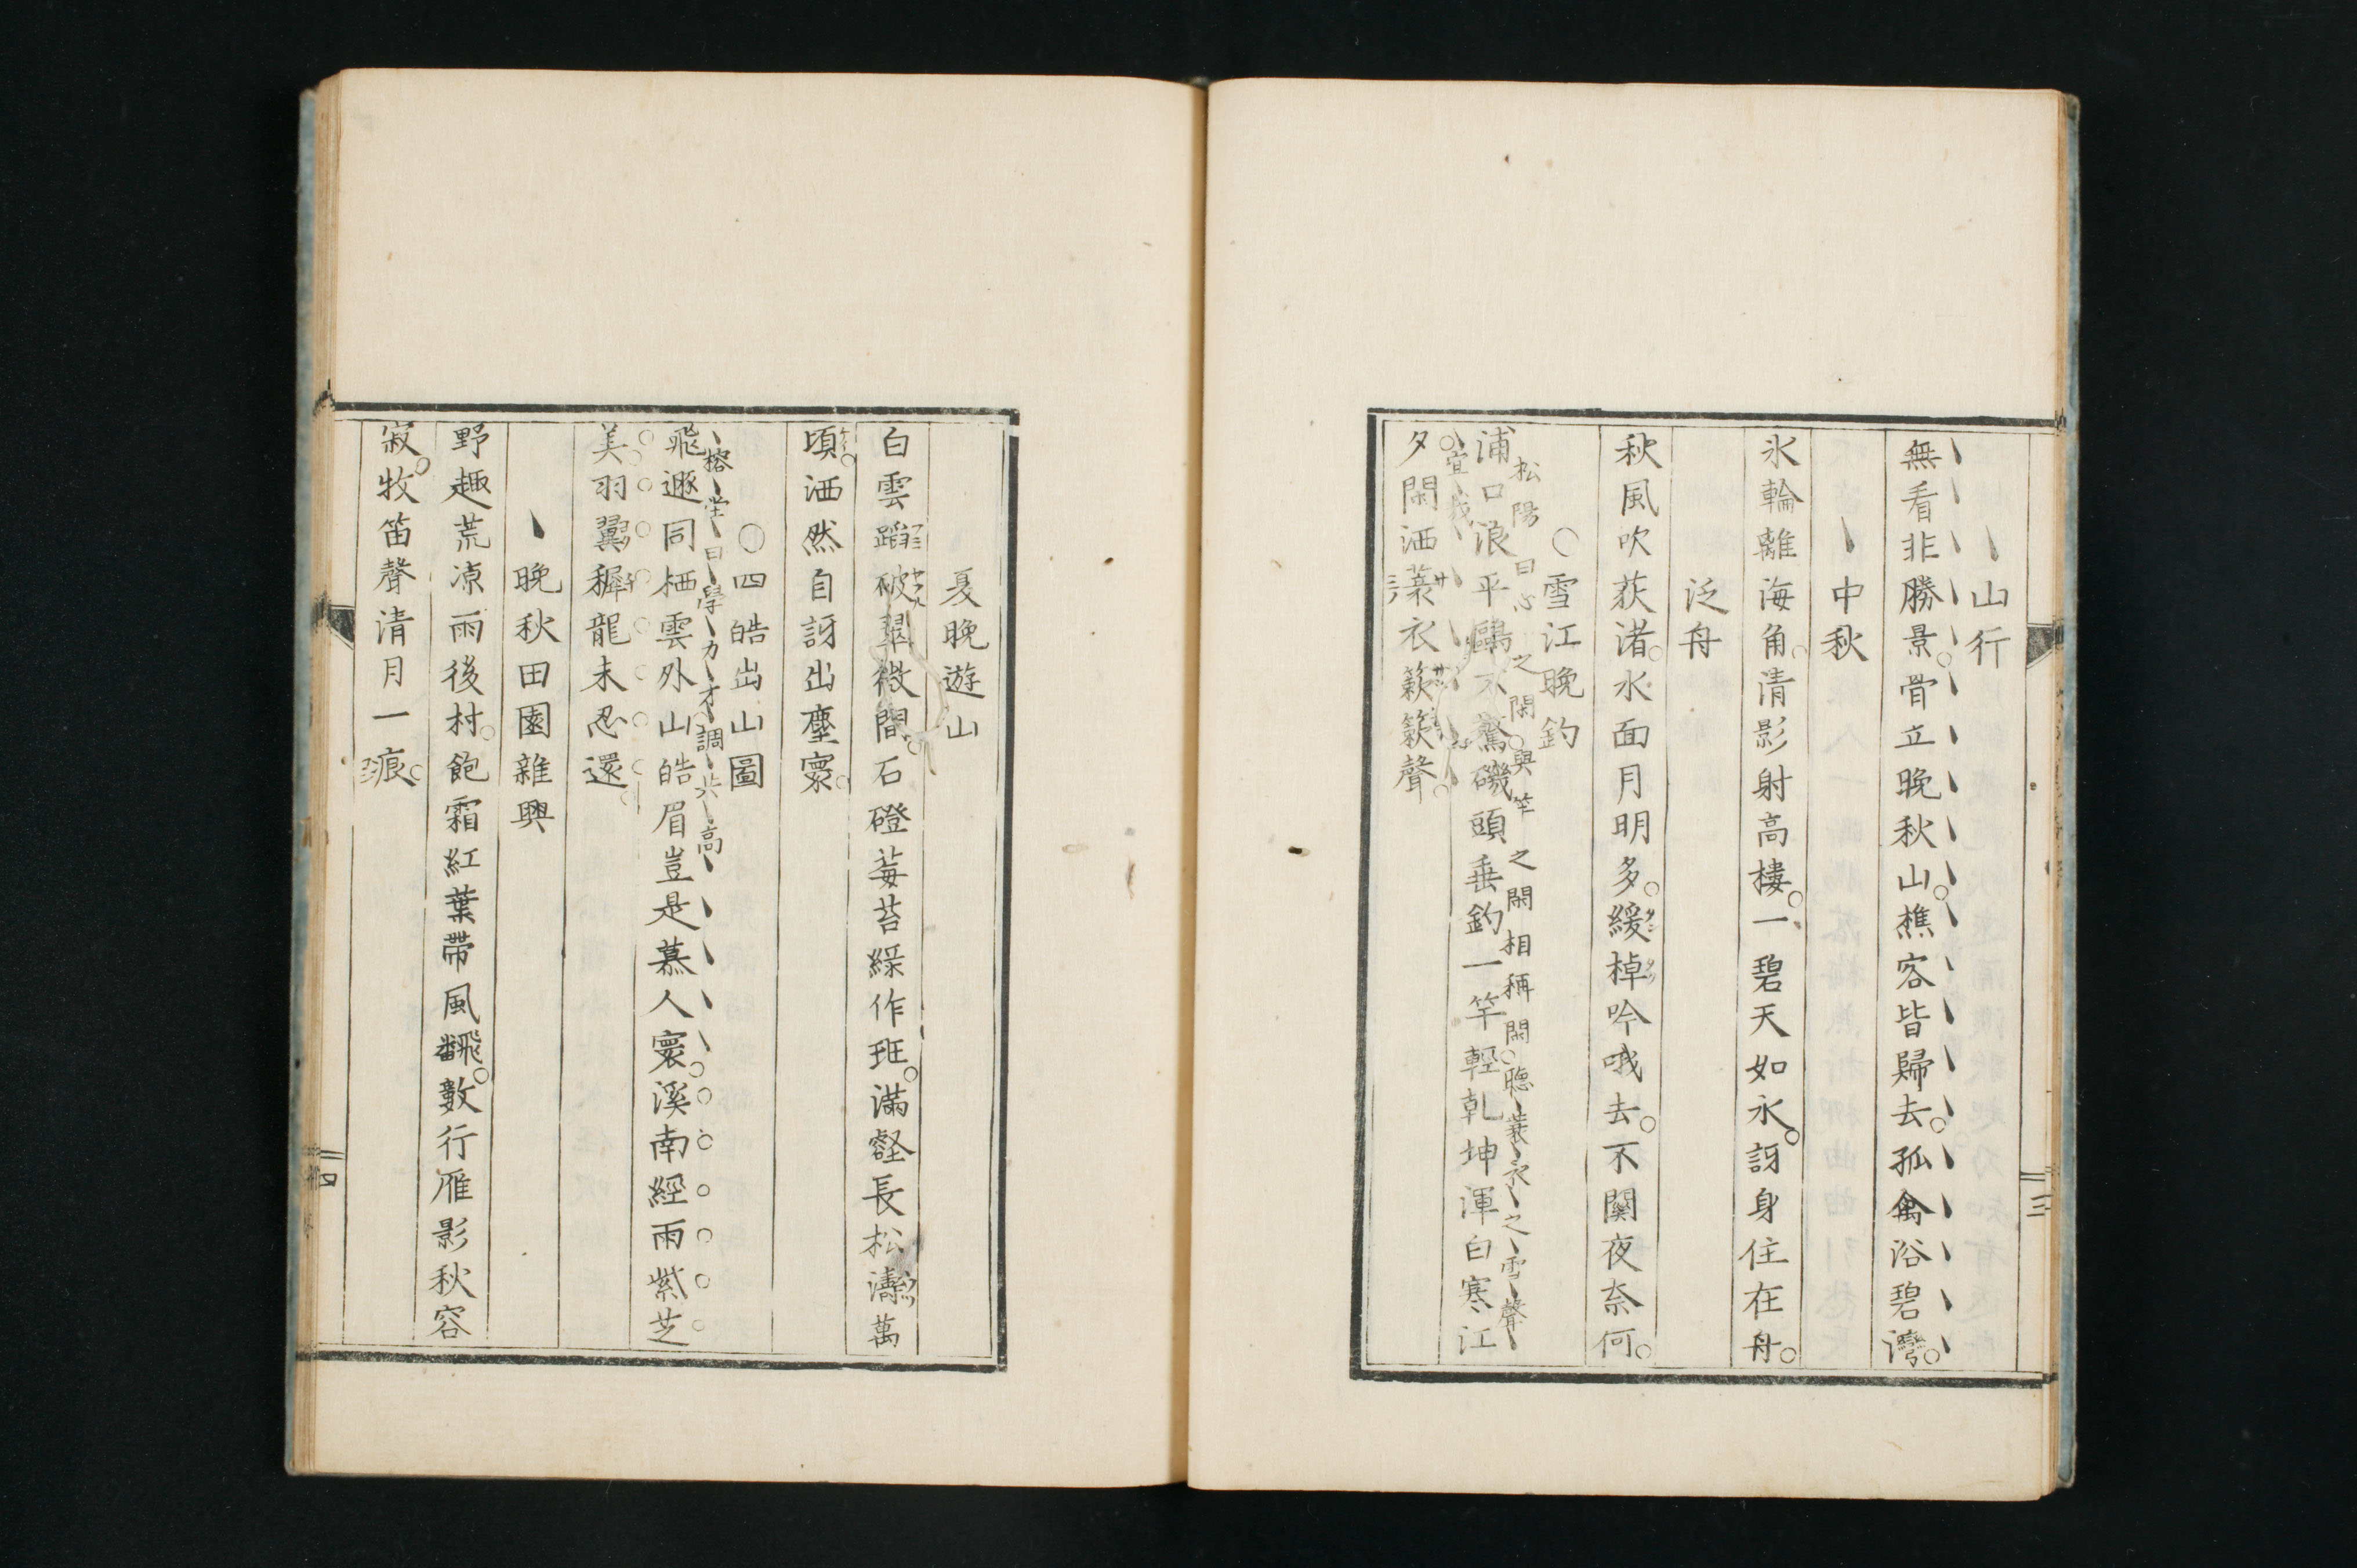 山行
無看非勝景。骨立晚秋山。樵客皆歸去。孤禽浴碧灣。
中秋
氷輪離海角。清影射高樓。一碧天如水。訝身住在舟。
泛舟
秋風吹荻渚。水面月明多。緩棹吟哦去。不關夜奈何。
〇雪江晚釣
松陽曰心之閑。與竿之閑相稱閑。聽蓑衣之雪聲
浦口浪平鷗不驚磯頭垂釣一竿輕乾坤渾白寒江
宜哉
夕。閑洒蓑衣簌簌聲。
三
夏晚遊山
白雲蹈破翠微間。石磴莓苔綠作班。滿壑長松濤萬
頃。洒然自訝出塵寰。
〇四皓出山圖
榕堂曰學力才調共高
飛遯同栖雲外山皓眉豈是慕人寰。溪南經雨紫芝
美。羽翼穉龍未忍還。
晚秋田園雜興
野趣荒凉雨後村。飽霜紅葉帶風飜。數行雁影秋容
寂。牧笛聲清月一痕。
四